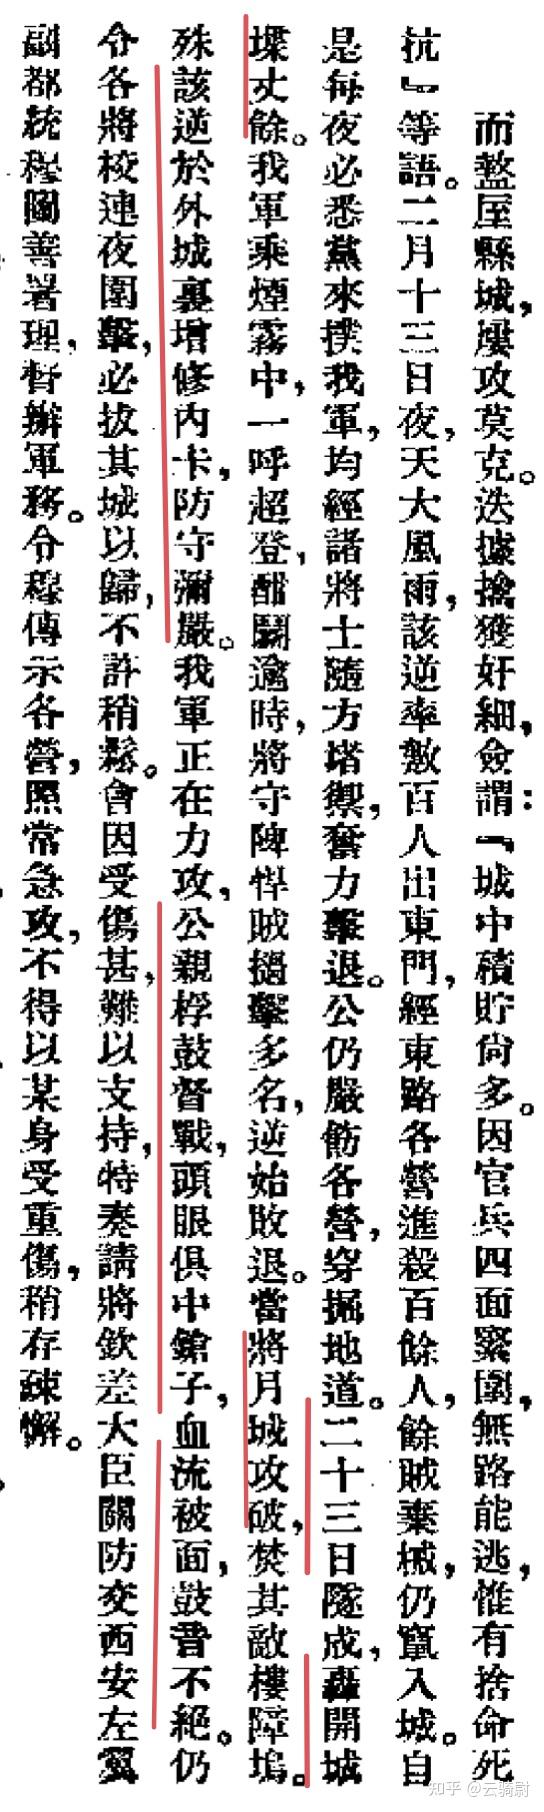 而盩厔縣城，屢攻莫克。迭據擒獲奸細，僉謂：『城中積貯尙多。因官兵四面緊圍，無路能逃，惟有捨命死
抗』等語。二月十三日夜，天大風雨，該逆率數百人出東門，經東路各營進殺百餘人，餘賊棄械，仍竄入城。自
是每夜必悉黨來撲我軍，均經諸將士隨方堵禦，奮力擊退。公仍嚴飭各營，穿掘地道。二十三日隧成，轟開城
堞丈餘。我軍乘煙霧中，一呼超登，酣鬬逾時，將守陴悍賊撾擊多名，逆始敗退。當將月城攻破，焚其敵樓障塢。
殊該逆於外城裏增修內卡，防守彌嚴。我軍正在力攻，公親桴鼓督戰，頭眼俱中鎗子，血流被面，鼓音不絕。仍
令各將校連夜圍擊，必拔其城以歸，不許稍鬆。會因受傷甚，難以支持，特奏請將欽差大臣關防交西安左翼
副都統穆圖善署理，督辦軍務。令穆傳示各營，照常急攻，不得以某身受重傷，稍存疎懈。
知乎 @云骑尉